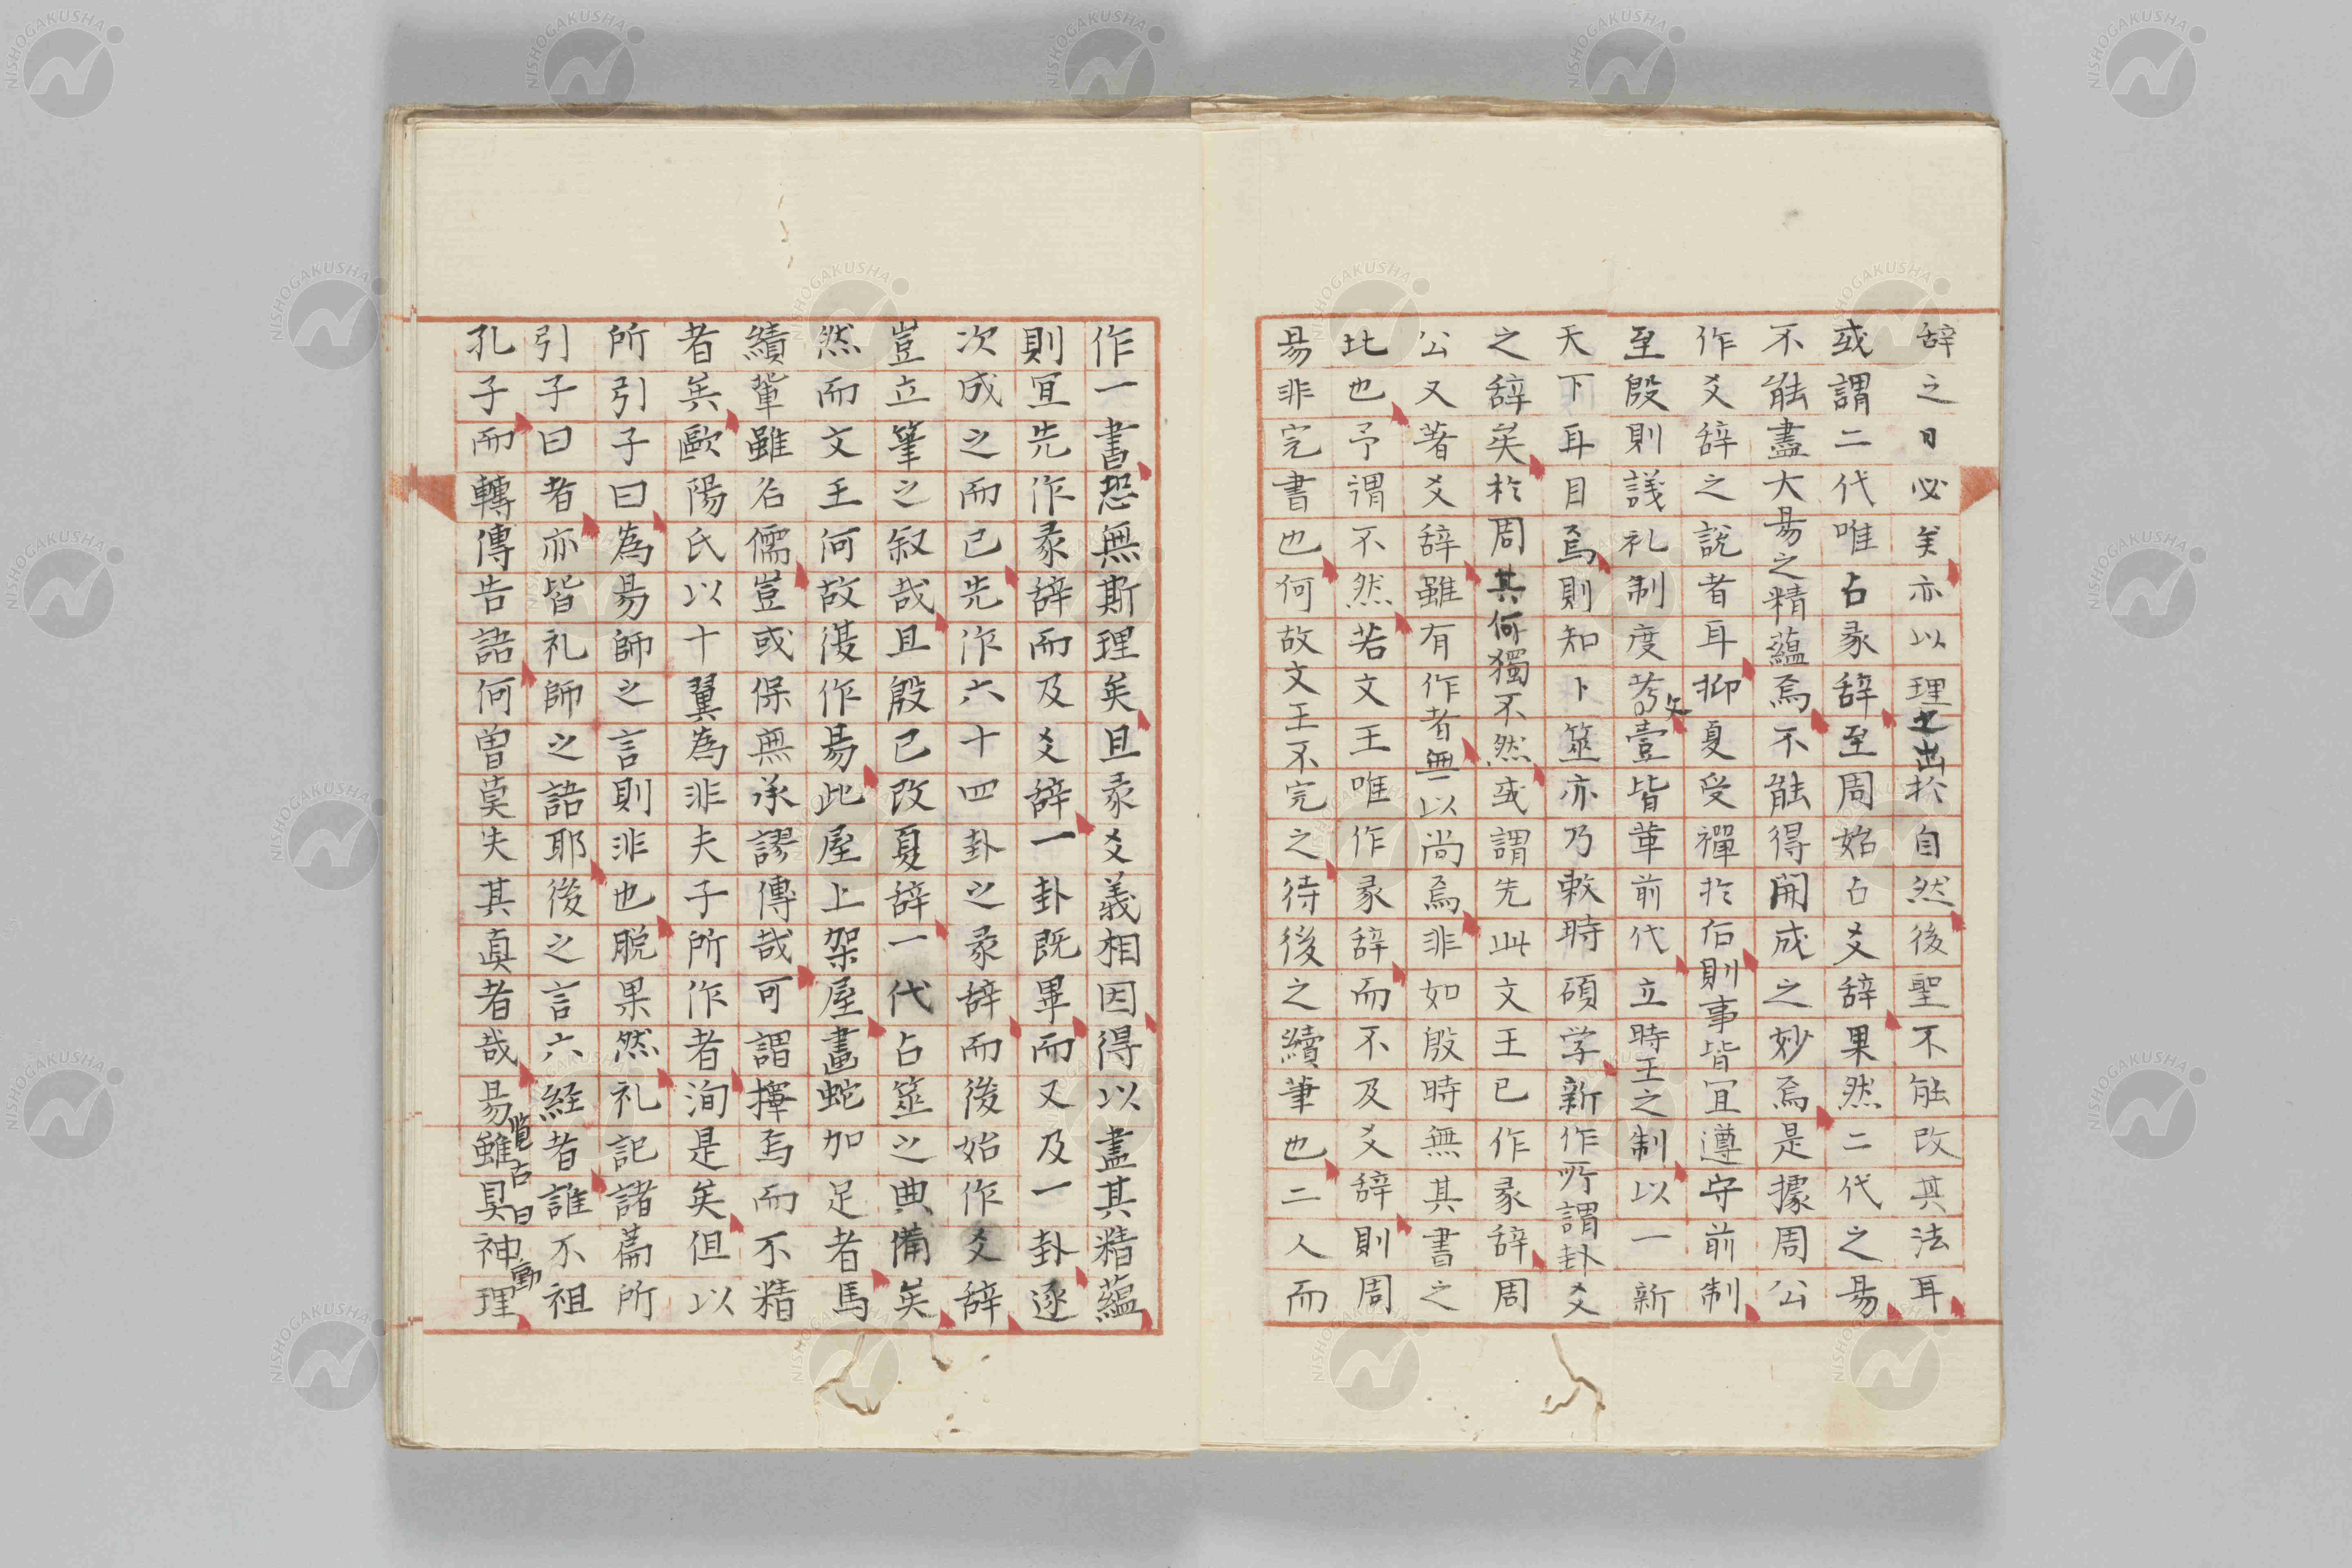 辞之日必矣亦以理之出於自然後聖不能改其法耳
或謂二代唯占彖辞至周始占爻辞果然二代之易
不能盡大易之精蘊焉不能得開成之妙焉是據周公
作爻辞之說者耳抑夏受禪於后則事皆宜遵守前制
至殷則議礼制度考文壹皆革前代立時王之制以一新
天下耳目焉則知卜筮亦乃敕時碩学新作所謂卦爻
之辞矣於周其何獨不然或謂先此文王已作彖辞周
公又著爻辞雖有作者無以尚焉非如殷時無其書之
比也予謂不然若文王唯作彖辞而不及爻辞則周
易非完書也何故文王不完之待後之續筆也二人而
作一書恐無斯理矣且彖爻義相因得以盡其精蘊
則宜先作彖辞而及爻辞一卦既畢而又及一卦逐
次成之而已先作六十四卦之彖辞而後始作爻辞
豈立筆之叙哉且殷已改夏辞一代占筮之典備矣
然而文王何故復作易此屋上架屋畫蛇加足者馬
續輩雖名儒豈或保無承謬傳哉可謂擇焉而不精
者矣歐陽氏以十翼為非夫子所作者洵是矣但以
所引子曰為易師之言則非也脱果然礼記諸篇所
引子曰者亦皆礼師之語耶後之言六経者誰不祖
孔子而轉傳告語何曽莫失其真者哉易雖具神理
覧古曰
NISHOGAKUSHA